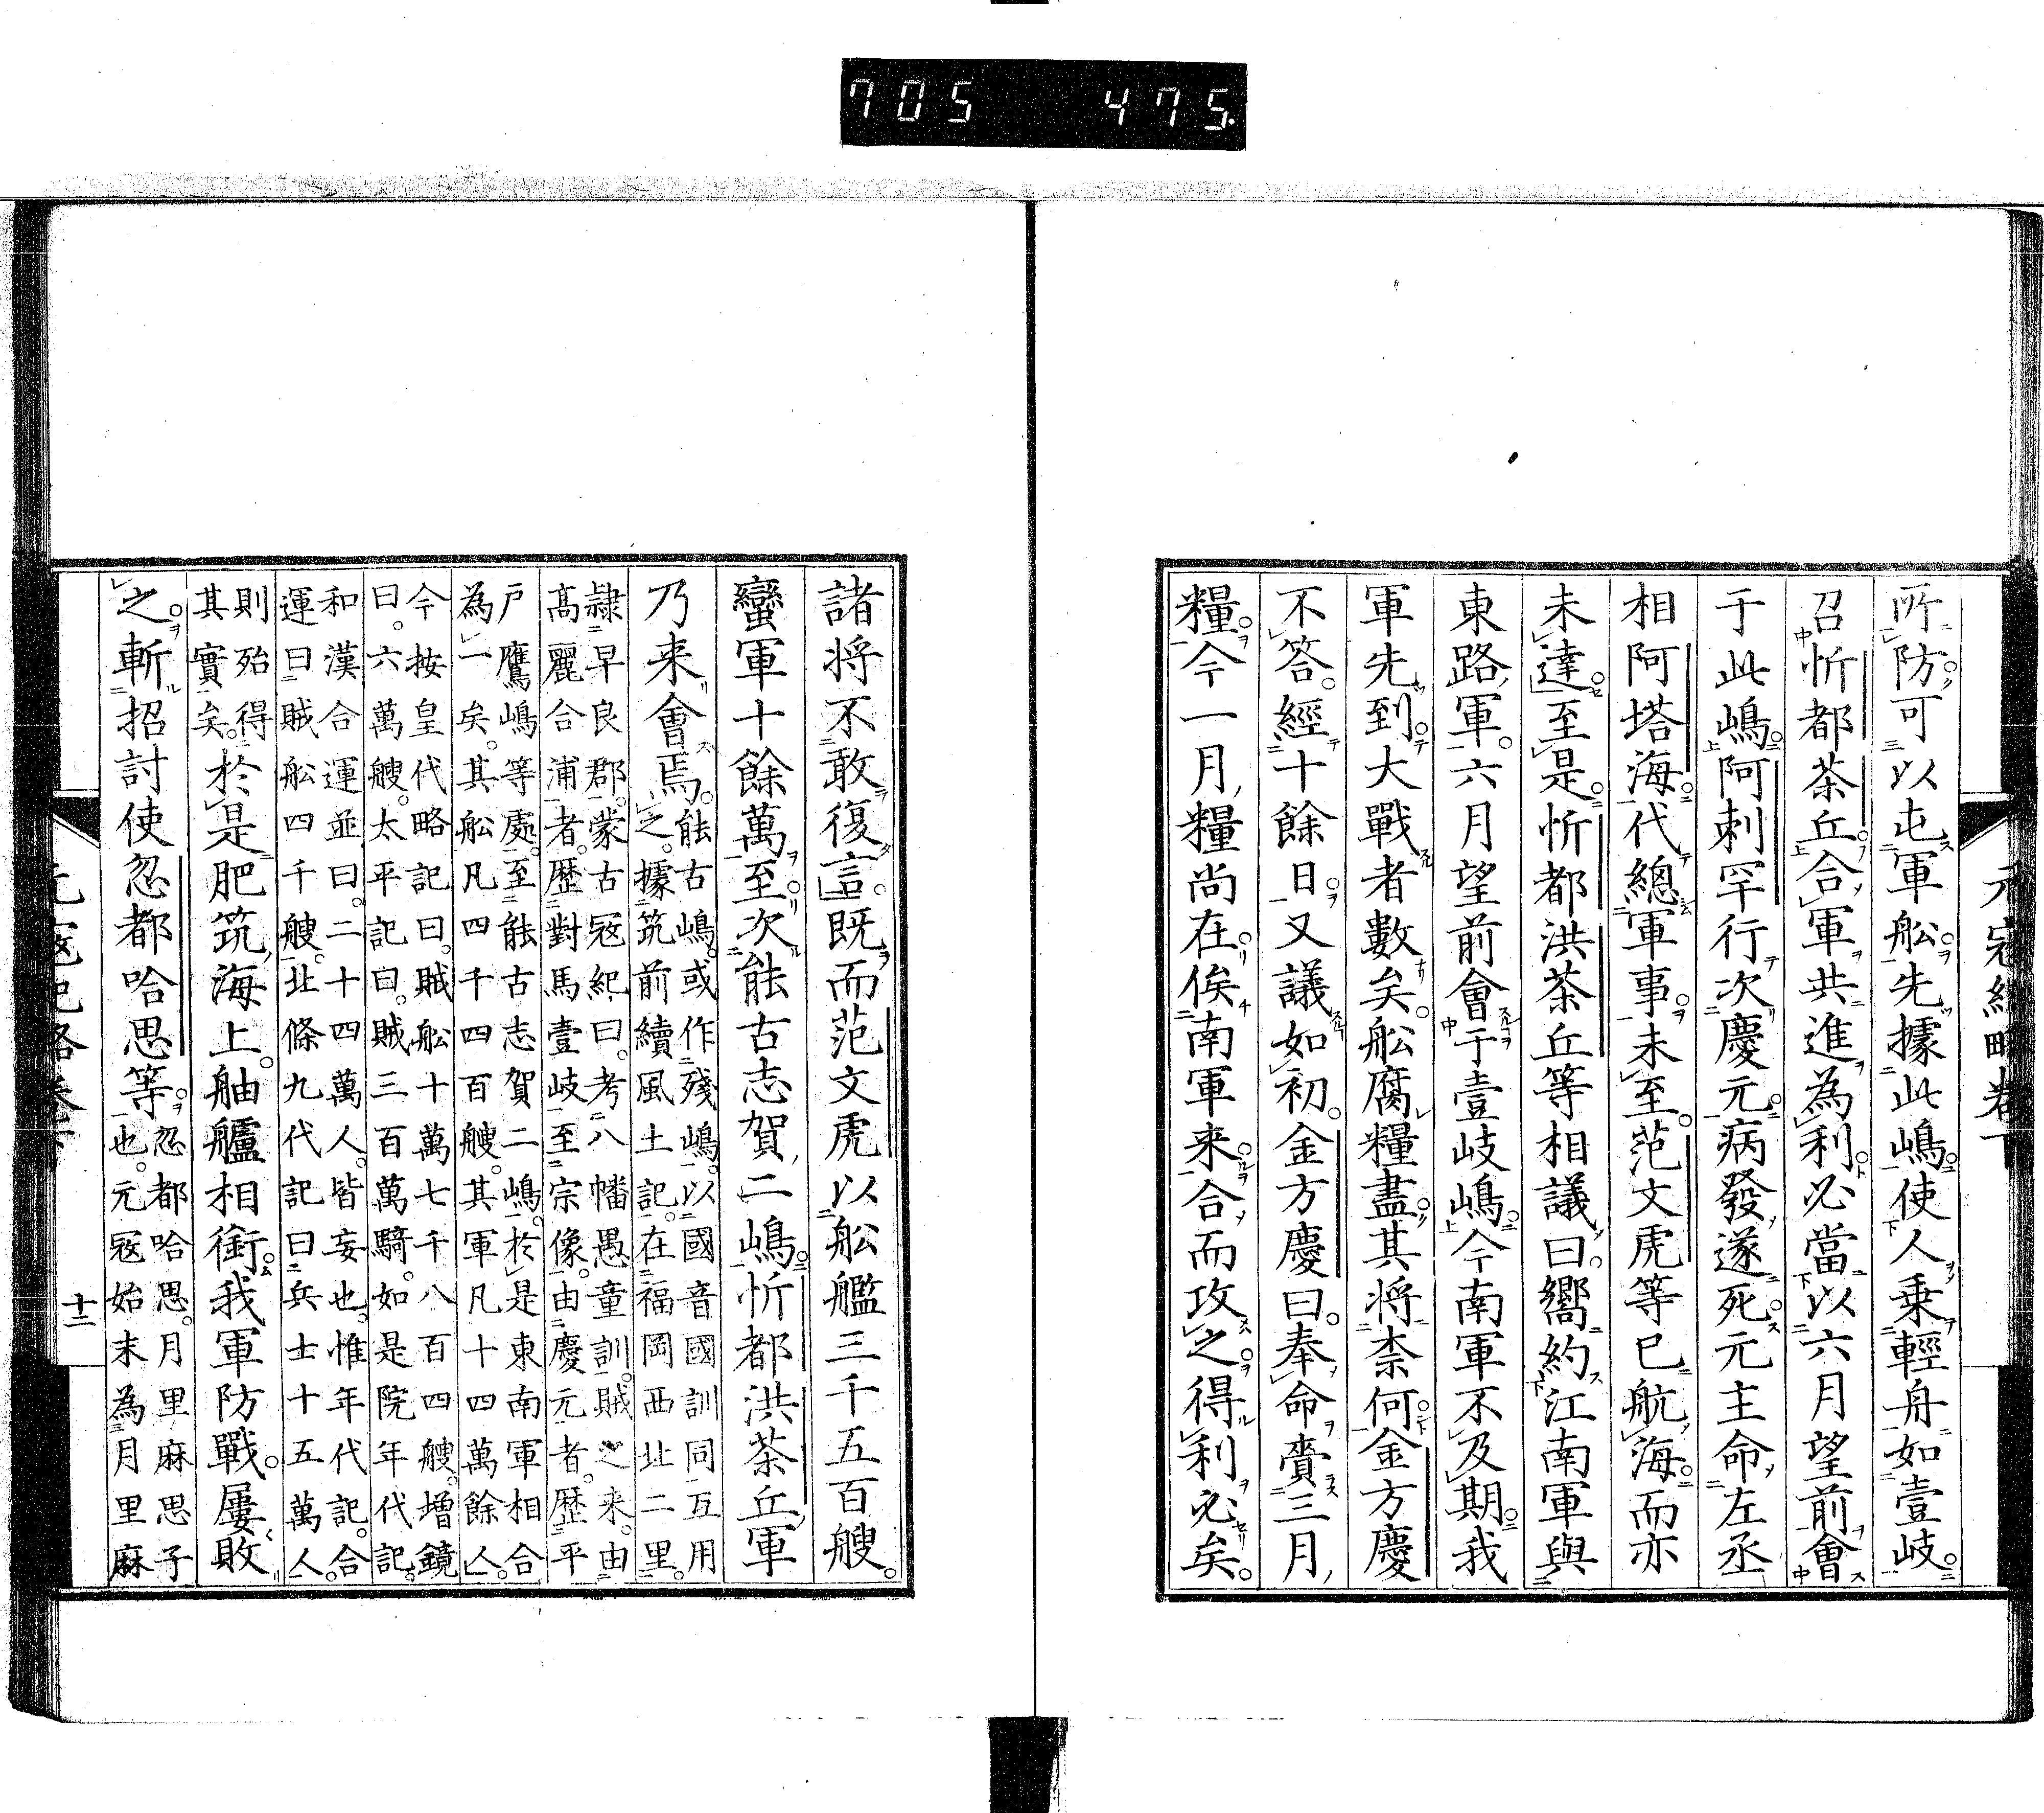 705 475.
元寇紀略卷下
所防可以屯軍舩先據此嶋使人乘輕舟如壹岐
召忻都茶丘合軍共進為利必當以六月望前會
于此嶋阿剌罕行次慶元病發遂死元主命左丞
相阿塔海代總軍事未至范文虎等已航海而亦
未達至是忻都洪茶丘等相議曰嚮約江南軍與
東路軍六月望前會于壹岐嶋今南軍不及期我
軍先到大戰者數矣舩腐糧盡其將柰何金方慶
不答經十餘日又議如初金方慶曰奉命賷三月
糧今一月糧尚在俟南軍来合而攻之得利必矣
諸将不敢復言既而范文虎以舩艦三千五百艘
蠻軍十餘萬至次能古志賀二嶋忻都洪茶丘軍
乃来會焉能古嶋或作殘嶋以國音國訓同互用
之據筑前續風土記在福岡西北二里
隷早良郡蒙古寇紀曰考八幡愚童訓賊之来由
髙麗合浦者歴對馬壹岐至宗像由慶元者歴平
戸鷹嶋等處至能古志賀二嶋於是東南軍相合
為一矣其舩凡四千四百艘其軍凡十四萬餘人
今按皇代略記曰賊舩十萬七千八百四艘増鏡
曰六萬艘太平記曰賊三百萬騎如是院年代記
和漢合運並曰二十四萬人皆妄也惟年代記合
運曰賊舩四千艘北條九代記曰兵士十五萬人
則殆得
其實矣於是肥筑海上舳艫相銜我軍防戰屢敗
之斬招討使忽都哈思等忽都哈思月里麻思子
也元寇始末為月里麻
元寇紀略卷下
十二